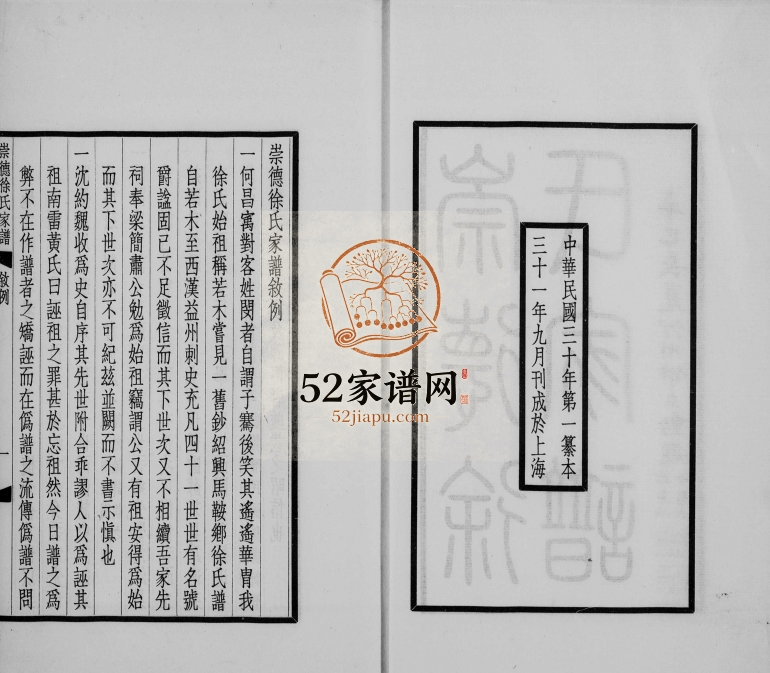 中華民國三十年第一纂本
三十一年九月刊成於上海
崇德徐氏家譜敘例
一何昌寓對客姓閔者自謂子騫後笑其遙遙華胄我
徐氏始祖稱若木嘗見一舊鈔紹興馬鞍鄉徐氏譜
自若木至西漢益州刺史充凡四十一世世有名號
爵諡固已不足徵信而其下世次又不相續吾家先
祠奉梁簡肅公勉爲始祖竊謂公又有祖安得爲始
而其下世次亦不可紀茲並闕而不書示愼也
一沈約魏收爲史自序其先世附合乖謬人以爲誣其
祖南雷黃氏曰誣祖之罪甚於忘祖然今日譜之爲
弊不在作譜者之矯誣而在僞譜之流傳僞譜不問
崇德徐氏家譜
敘例
一
52家谱网
52jiapu.com